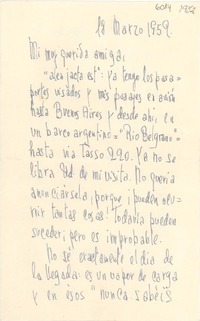 6084 1252
18 Marzo 1959.
Mi muy querida amiga:
"alea jacta est": Ya tengo los pasa=
portes visados y mis pasajes en avión
hasta Buenos Aires y desde ahí en
un barco argentino = "Río Belgrano" =
hasta via Tasso 220. Ya no se
libra Ud de mi visita. No quería
anunciársela, porque ¡pueden ocu=
rrir tantas cosas! Todavía pueden
suceder; pero es improbable.
No sé exactamente el día de
la llegada: es un vapor de carga
y en esos "nunca sabéis